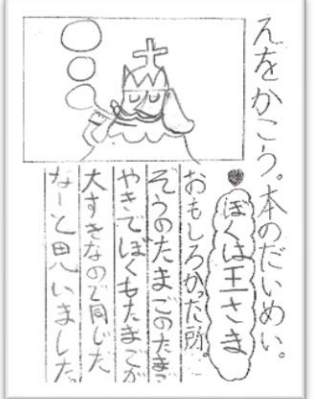 えをかこう。本のだいめい。
ぼくは王さま
おもしろかった所。
ぞうのたまごのたまご
やきでぼくもたまごが
大すきなので同じだ
なーと思いました。